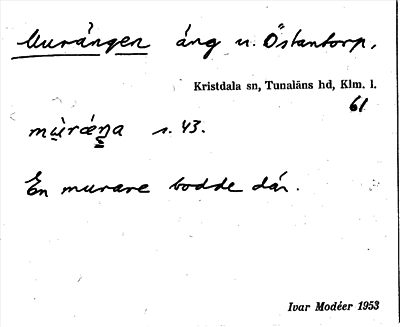 Murängen äng u. Östantorp.
Kristdala sn, Tunaläns hd, Klm. l.
61
mùrǽŋa s. 43.
En murare bodde där.
Ivar Modéer 1953